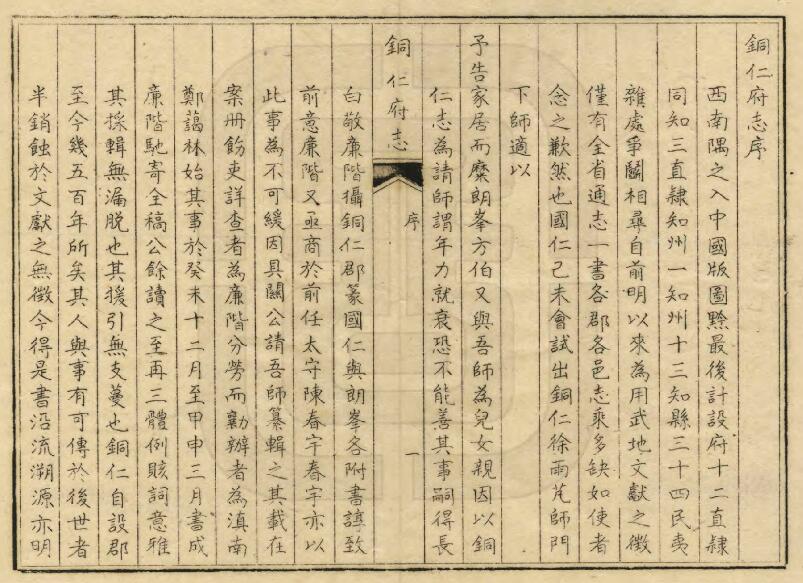 銅仁府志序
西南隅之入中國版圖黔最後計設府十二直隸
同知三直隸知州一知州十三知縣三十四民夷
雜處爭鬬相尋自前明以來為用武地文獻之徵
僅有全省通志一書各郡各邑志乘多缺如使者
念之歉然也國仁己未會試出銅仁徐雨芃師門
下師適以
予告家居而糜朗峯方伯又與吾師為兒女親因以銅
仁志為請師謂年力就衰恐不能善其事嗣得長
銅仁府志
序
一
白敬廉階攝銅仁郡篆國仁與朗峯各附書諄致
前意廉階又亟商於前任太守陳春宇春宇亦以
此事為不可緩因具關公請吾師纂輯之其載在
案冊飭吏詳查者為廉階分勞而勷辦者為滇南
鄭藹林始其事於癸未十二月至甲申三月書成
廉階馳寄全稿公餘讀之至再三體例賅詞意雅
其採輯無漏脱也其援引無支蔓也銅仁自設郡
至今幾五百年所矣其人與事有可傳於後世者
半銷蝕於文獻之無徵今得是書沿流溯源亦明